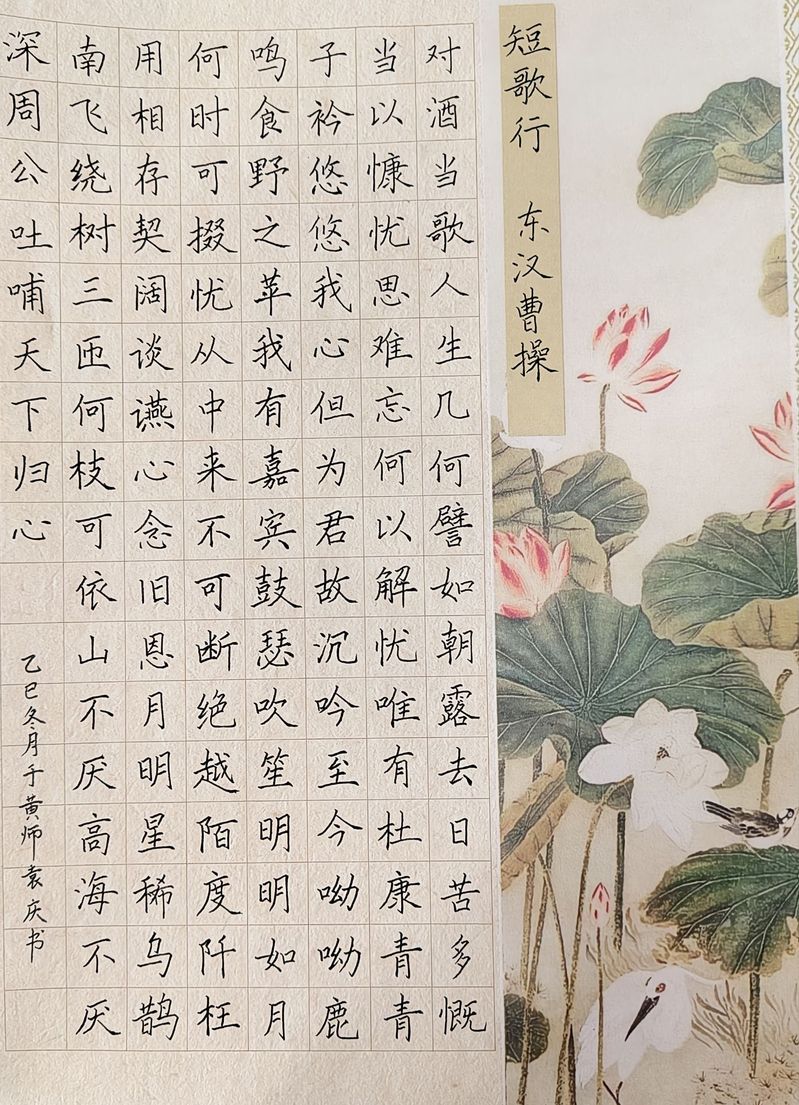 短歌行 东汉曹操
对酒当歌人生几何譬如朝露去日苦多慨
当以慷忧思难忘何以解忧唯有杜康青青
子衿悠悠我心但为君故沉吟至今呦呦鹿
鸣食野之苹我有嘉宾鼓瑟吹笙明明如月
何时可掇忧从中来不可断绝越陌度阡枉
用相存契阔谈䜩心念旧恩月明星稀乌鹊
南飞绕树三匝何枝可依山不厌高海不厌
深周公吐哺天下归心
乙巳冬月于黄师袁庆书